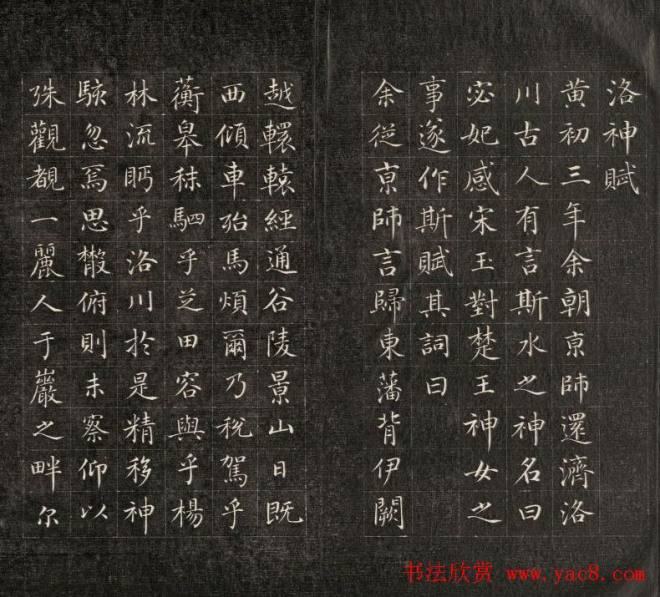 洛神賦
黄初三年余朝京師還濟洛
川古人有言斯水之神名曰
宓妃感宋玉對楚王神女之
事遂作斯賦其詞曰
余從京師言歸東藩背伊闕
越轘轅經通谷陵景山日既
西傾車殆馬煩爾乃稅駕乎
蘅皋秣駟乎芝田容與乎楊
林流眄乎洛川於是精移神
駭忽焉思散俯則未察仰以
殊觀覩一麗人于巖之畔尔
书法欣赏 www.yac8.com